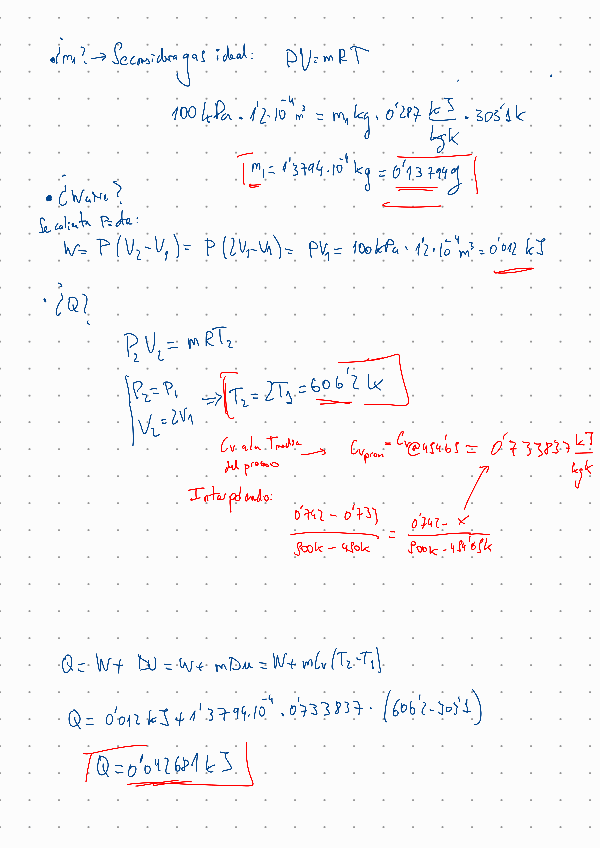 • ¿m₁? → Se considera gas ideal: PV = mRT
100 kPa · 1'2·10⁻⁴ m³ = m₁ kg · 0'287 kJ/kgK · 303'1 K
m₁ = 1'3794·10⁻⁴ kg = 0'13794 g
• ¿W?
Se calienta P=cte:
W = P(V₂-V₁) = P(2V₁-V₁) = PV₁ = 100 kPa · 1'2·10⁻⁴ m³ = 0'012 kJ
• ¿Q?
P₂V₂ = mRT₂
P₂ = P₁
V₂ = 2V₁
⇒ T₂ = 2T₁ = 606'2 K
Cv a la Tmedia del proceso → Cv,prom = Cv@454.65 = 0'733837 kJ/kgK
Interpolando:
(0'742 - 0'733)/(500K - 450K) = (0'742 - x)/(500K - 454'65K)
Q = W + DU = W + mDu = W + mCv(T₂-T₁)
Q = 0'012 kJ + 1'3794·10⁻⁴ · 0'733837 · (606'2 - 303'1)
Q = 0'042681 kJ